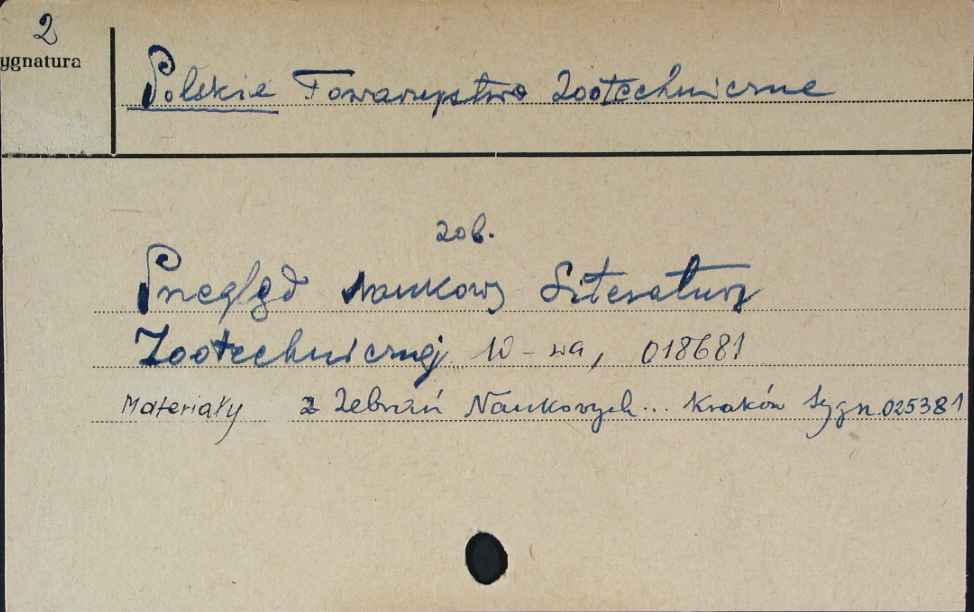 2
ygnatura
Polskie Towarzystwo Zootechniczne
zob.
Przegląd Naukowej Literatury
Zootechnicznej W-wa, 018681
Materiały z Zebrań Naukowych... Kraków Sygn. 025381